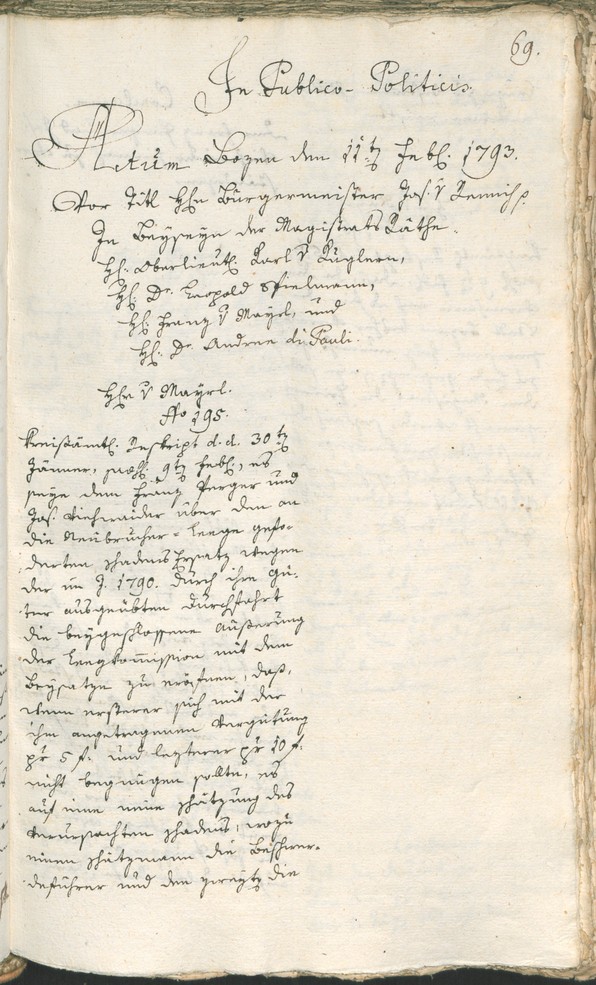 69.
In Publico-Politicis
Actum Bozen den 11t Febl. 1793.
Vor Titl Hhn Bürgermeister Jos. v Remich p.
In Beyseyn der Magistrats Räthe.
Hl. Oberlieut. Karl v Zieglern,
Hl. Dr. Leopold Spielmann,
Hl. Franz v Mayrl, und
Hl. Dr. Andree di Pauli.
Hhr v Mayrl.
No 195.
Kreisämtl. Reskript d.d. 30t
Jänner, 9t Febl., es
seye dem Franz Perger und
Jos. Viehweider über den an
die Neubrucher-Leege gefo-
derten Schadens Ersatz wegen
der im J. 1790. durch ihre Gü-
ter ausgeübten Durchfahrt
die beygeschlossene Äußerung
der Leegkommission mit dem
Beysatze zu eröfnen, daß,
wenn ersterer sich mit der
ihm angetragenen Vergütung
pr 5 f. und lezterer pr 10 f.
nicht begnügen sollte, es
auf eine neue Schätzung des
verursachten Schadens, wozu
einen Schätzmann die Beschwer-
deführer und den zweyt die